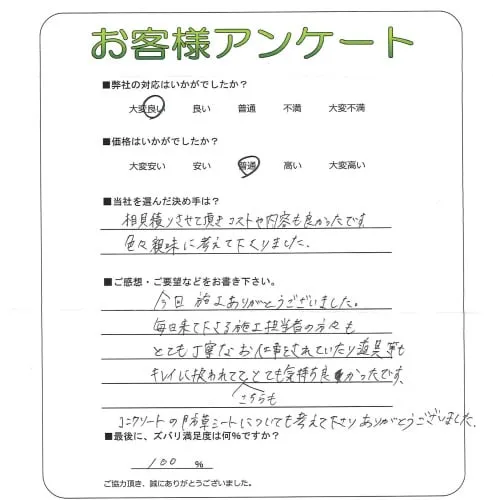 お客様アンケート
■弊社の対応はいかがでしたか?
大変良い 良い 普通 不満 大変不満
■価格はいかがでしたか?
大変安い 安い 普通 高い 大変高い
■当社を選んだ決め手は?
相見積りさせて頂き コストや内容も良かったです
色々親味に考えて下さりました.
■ご感想・ご要望などをお書き下さい。
今回 施工ありがとうございました。
毎日来て下さる施工担当者の方々も
とても丁寧なお仕事をされていたり道具等も
キレイに扱われてて とても気持ち良かったです.
こちらも
コンクリートの防草シートについても考えて下さりありがとうございました.
■最後に、ズバリ満足度は何%ですか?
100 %
ご協力頂き、誠にありがとうございました。